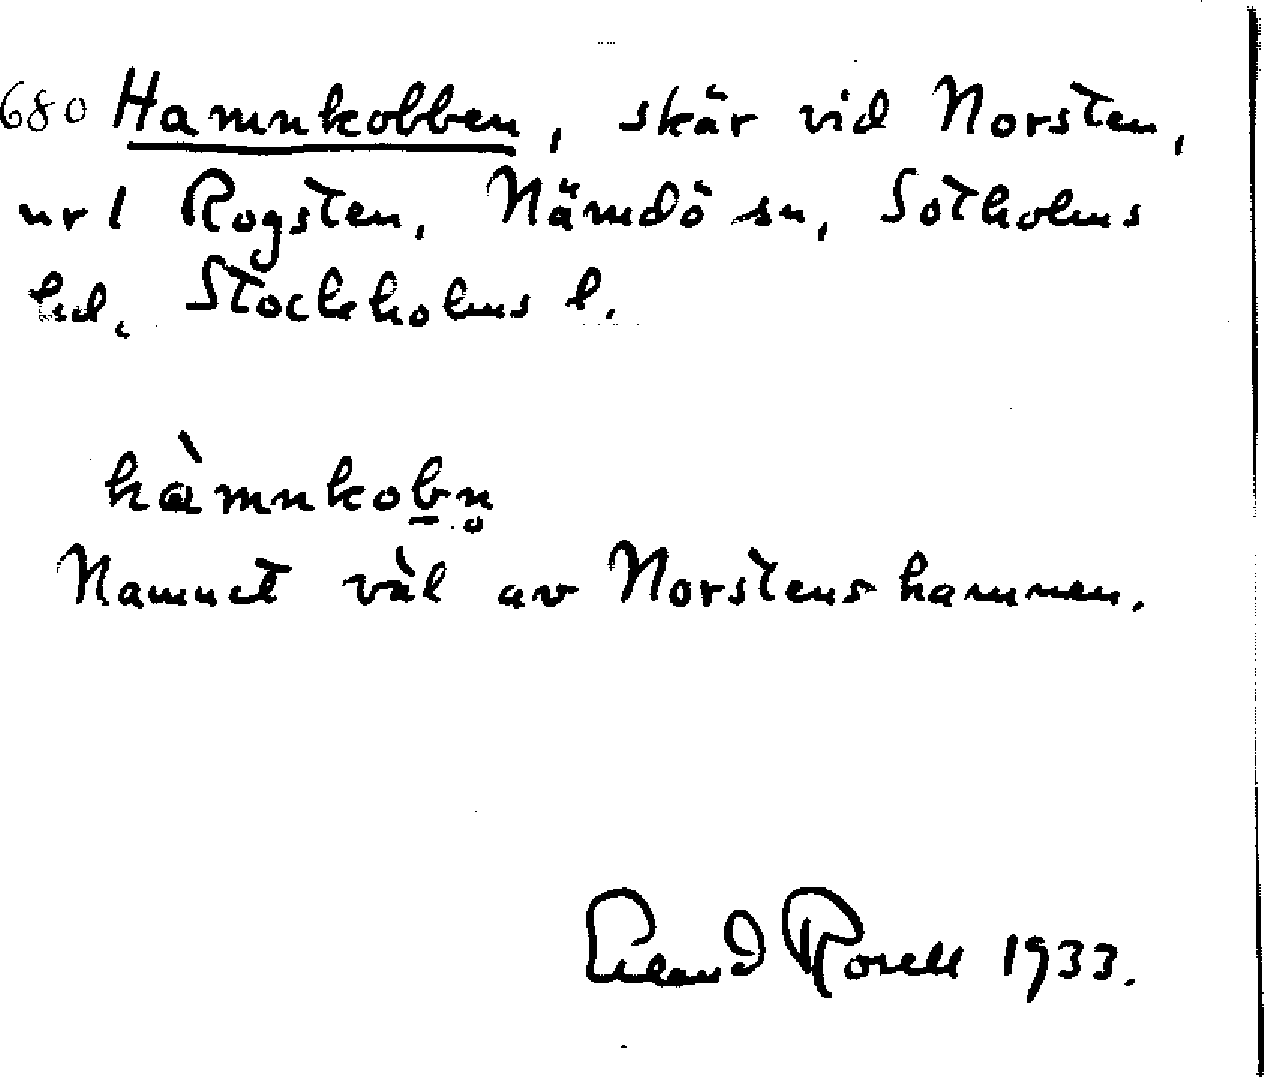 680 Hamnkobben, skär vid Norsten,
nr 1 Rogsten, Nämdö sn, Sotholms
hd, Stockholms l.
hàmnkob̲n̥
Namnet väl av Norstens hamnen.
Erland Rosell 1933.